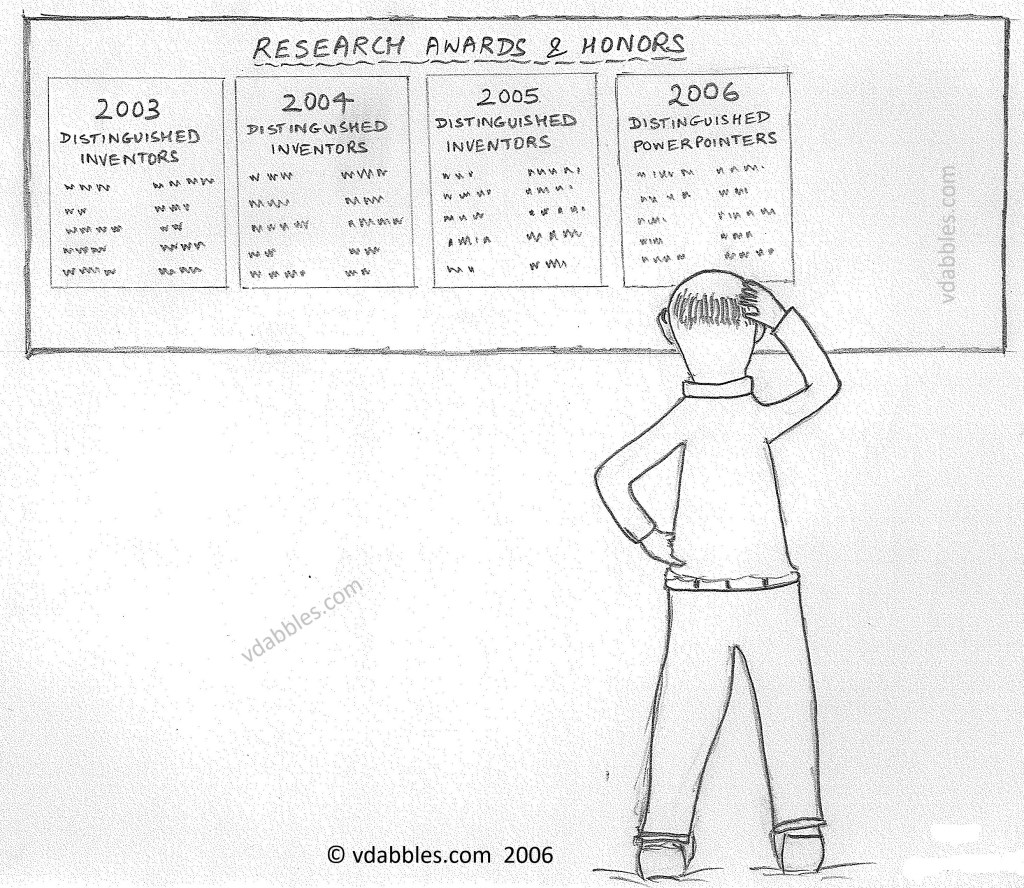 RESEARCH AWARDS & HONORS
2003
DISTINGUISHED
INVENTORS
2004
DISTINGUISHED
INVENTORS
2005
DISTINGUISHED
INVENTORS
2006
DISTINGUISHED
POWERPOINTERS
vdabbles.com
vdabbles.com
© vdabbles.com 2006